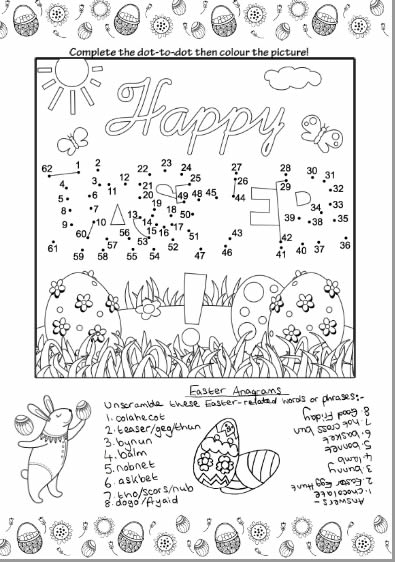 Complete the dot-to-dot then colour the picture!
Happy
62 1 2 22 23 24 27 28 30 31
4 3 12 21 25 26 29 32
5 6 11 20 49 48 45 44 34 33
8 7 13 19 18 50 39 38 35
9 10 56 14 15 16 17 51 43 42
60 57 53 52 37 36
61 59 58 55 54 47 46 41 40
!
Easter Anagrams
Unscramble these Easter-related words or phrases:-
1. colahecot
2. teaser/geg/thun
3. bynun
4. balm
5. nobnet
6. askbet
7. tho/scors/nub
8. dogo/fyaid
Answers -
1. chocolate
2. Easter Egg Hunt
3. bunny
4. lamb
5. bonnet
6. basket
7. hot cross bun
8. Good Friday